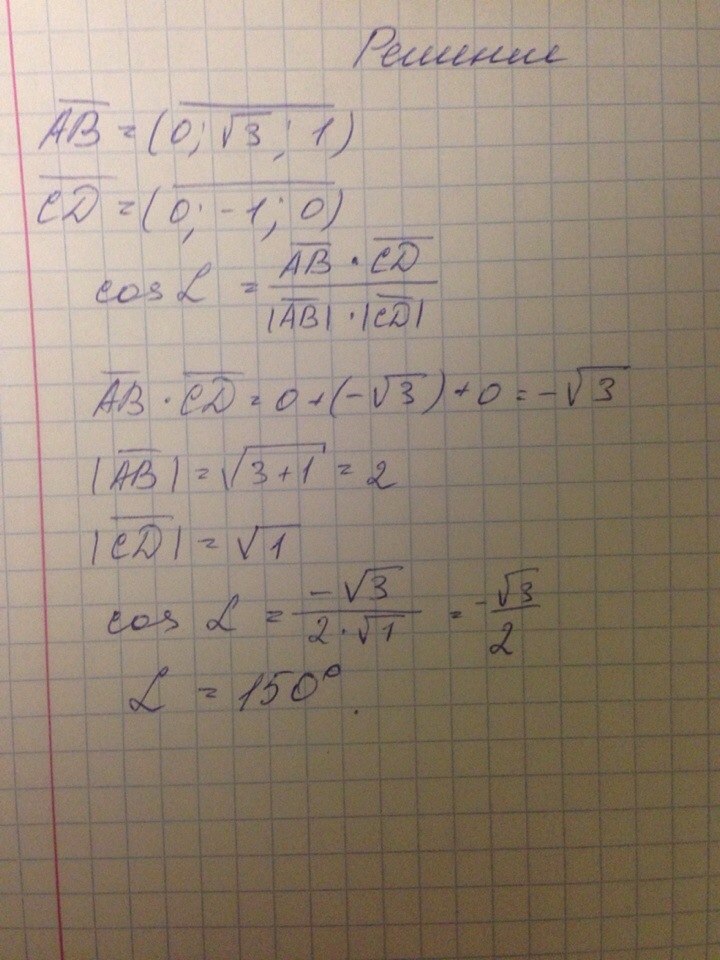 Решение
A̅B̅ = (0; √3; 1)
C̅D̅ = (0; -1; 0)
cos L = A̅B̅ · C̅D̅ / |A̅B̅| · |C̅D̅|
A̅B̅ · C̅D̅ = 0 + (-√3) + 0 = -√3
|A̅B̅| = √3+1 = 2
|C̅D̅| = √1
cos L = -√3 / 2·√1 = -√3 / 2
L = 150°.